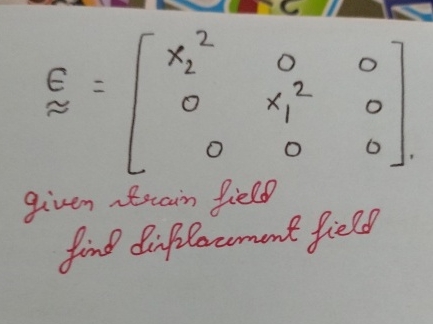 ε = [ x₂² 0 0
0 x₁² 0
0 0 0 ].
given strain field
find displacement field